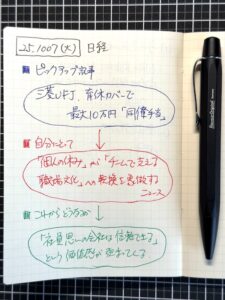 25.1007(火) 日経
■ ピックアップ記事
三菱UFJ、育休カバーで
最大10万円「同僚手当」
■ 自分にとって
「個人の休み」が「チームで支える
職場文化」への転換を意味する
ニュース
■ これからどうなるか
「社員思いの会社は信頼できる」
という価値感が広まってくる